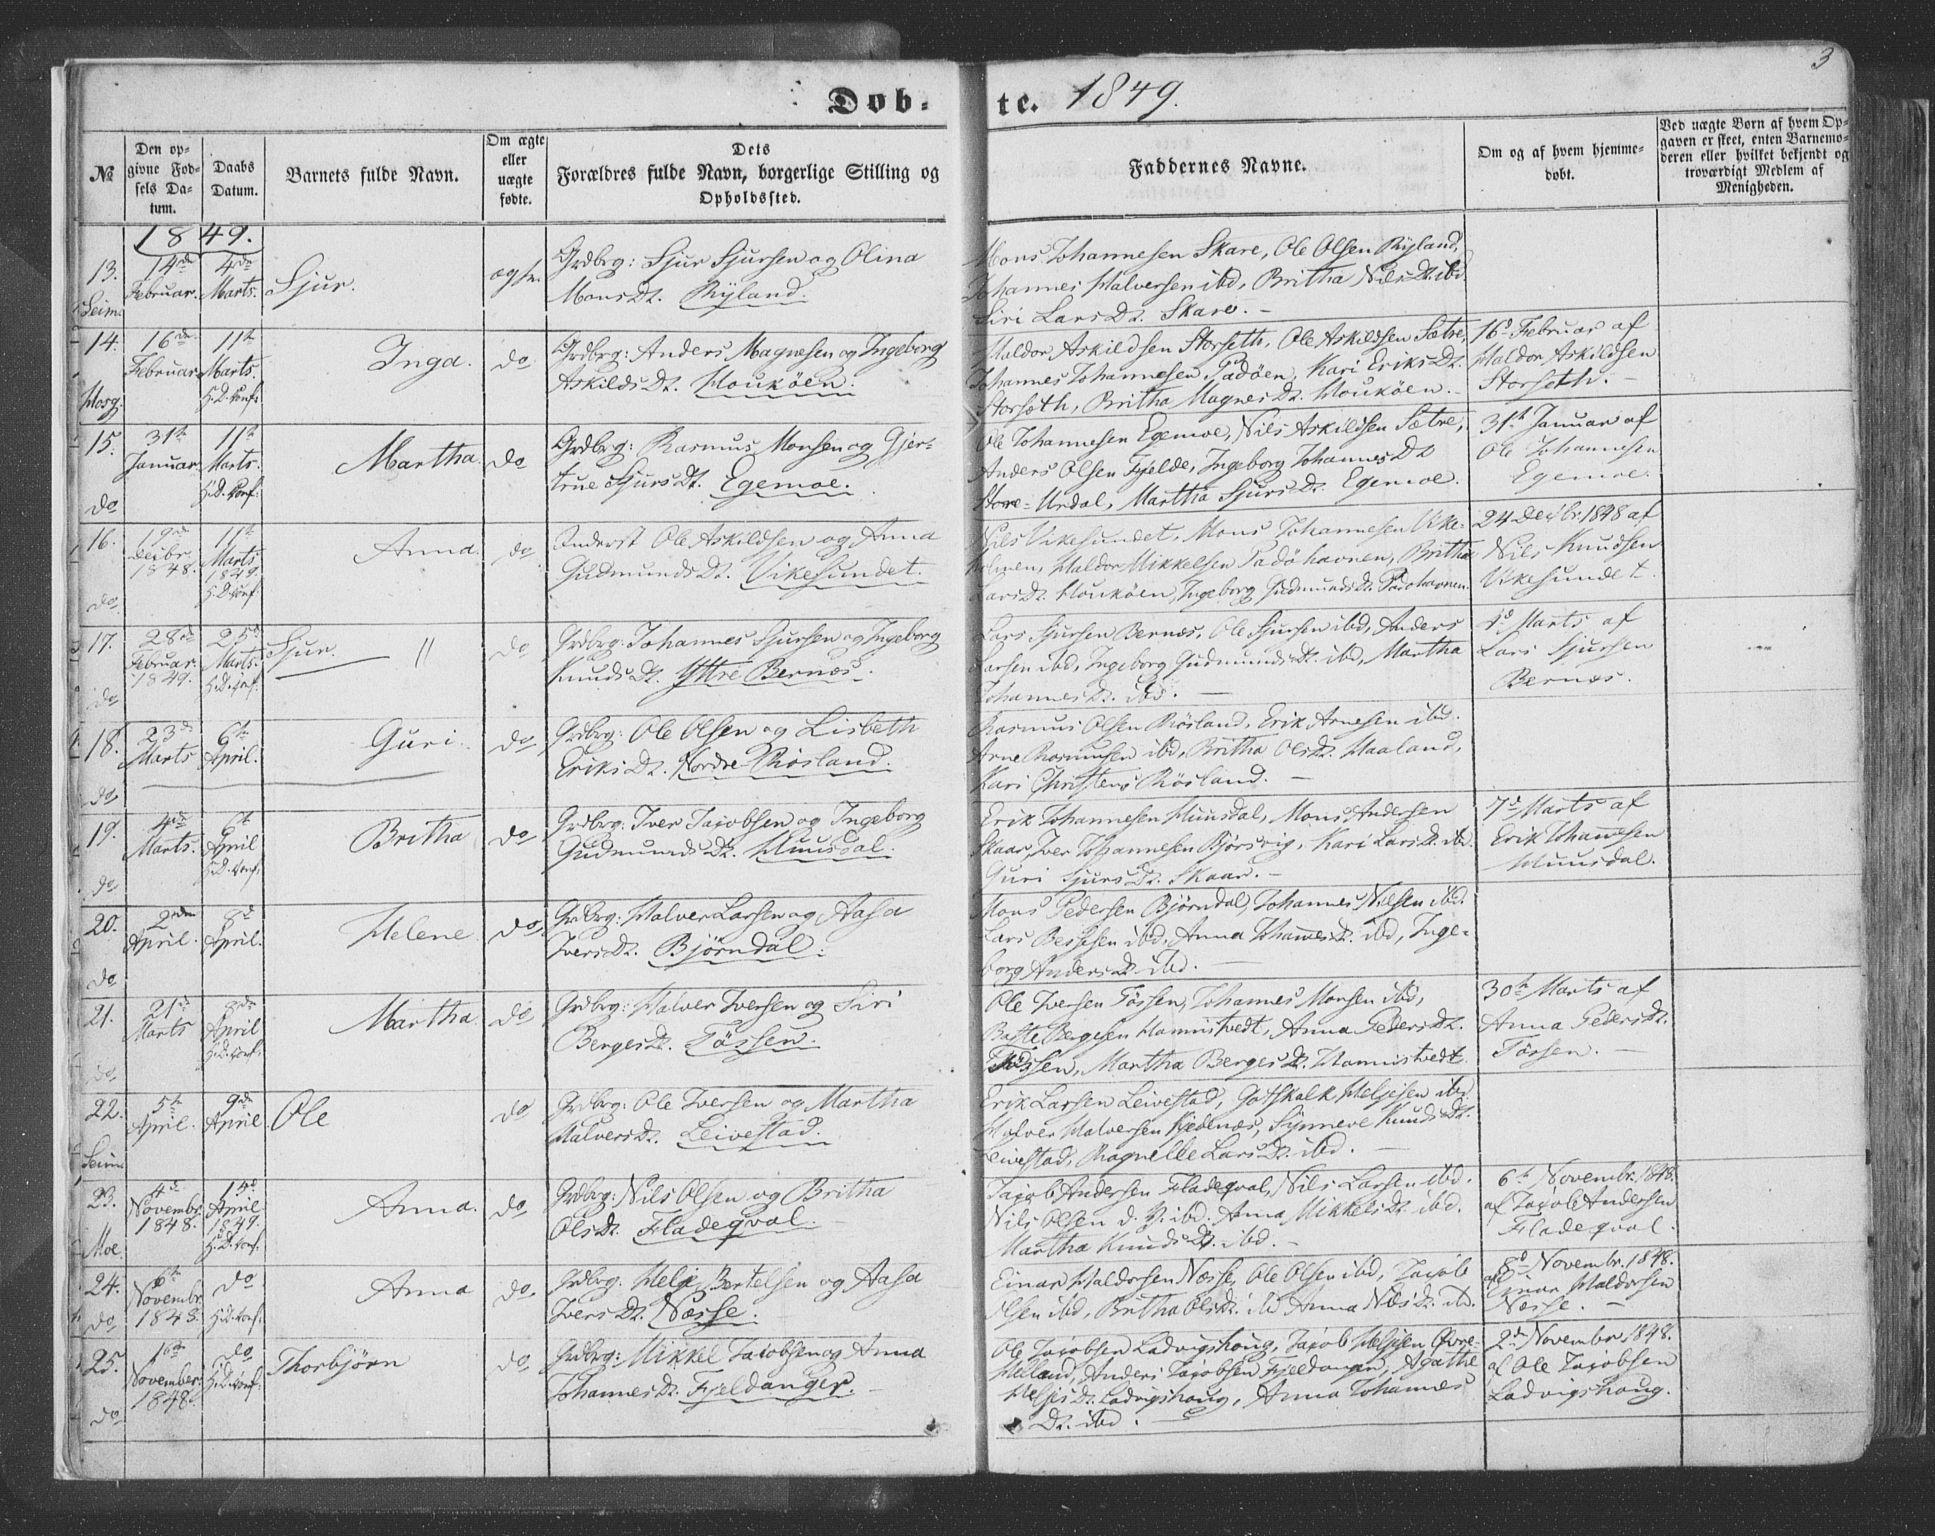 3
Døbte. 1849.
№
Den opgivne Fødsels Datum.
Daabs Datum.
Barnets fulde Navn.
Om ægte eller uægte fødte.
Dets Forældres fulde Navn, borgerlige Stilling og Opholdssted.
Faddernes Navne.
Om og af hvem hjemmedøbt.
Ved uægte Børn af hvem Opgaven er skeet, enten Barnemoderen eller hvilket bekjendt og troværdigt Medlem af Menigheden.
1849.
13. Seim
14de Februar.
4de Marts.
Sjur.
ægte.
Grdbrg: Sjur Sjursen og Olina
Mons Dt. Ryland.
Mons Johannesen Skare, Ole Olsen Ryland,
Johannes Halversen ibd, Britha Nils Dt. ibd
Siri Lars Dt. Skare. –
14. Hosg.
16de Februar
11te Marts. H.D. konf.
Inga.
do
Grdbrg: Anders Magnesen og Ingeborg
Askilds Dt. Houköen.
Haldor Askildsen Storseth, Ole Askildsen Sætre,
Johannes Johannesen Padöen, Kari Eriks Dt.
Storseth, Britha Magnes Dt. Houköen. –
16d Februar af
Haldor Askildsen
Storseth. –
15. do
31te Januar.
11te Marts. H.D. konf.
Martha.
do
Grdbrg: Rasmus Monsen og Gjer-
true Sjurs Dt. Egemoe.
Ole Johannesen Egemoe, Nils Askildsen Sætre,
Anders Olsen Fjelde, Ingeborg Johannes Dt
Store-Urdal, Martha Sjurs Dt. Egemoe.
31te Januar af
Ole Johannesen
Egemoe.
16. do
19de Decbr. 1848.
11te Marts 1849. H.D. konf.
Anna.
do
Inderst Ole Askildsen og Anna
Gudmunds Dt. Vikesundet.
Nils Vikesundet, Mons Johannesen Vike-
holmen, Haldor Mikkelsen Padöhavnen, Britha
Lars Dt. Houköen, Ingeborg Gudmunds Dt. Padöhavnen.
24 Decbr. 1848 af
Nils Knudsen
Vikesundet.
17. do
28de Februar 1849.
25d Marts.
Sjur. "
do
Grdbrg: Johannes Sjursen og Ingeborg
Knuds Dt. Yttre Bernæs.
Lars Sjursen Bernæs, Ole Sjursen ibd, Anders
Larsen ibd, Ingeborg Gudmunds Dt. ibd, Martha
Johannes Dt. ibd. –
1d Marts af
Lars Sjursen
Bernæs.
18. do
23de Marts
6te April.
Guri.
do
Grdbrg: Ole Olsen og Lisbeth
Eriks Dt. Nordre Risland.
Rasmus Olsen Rösland, Erik Arnesen ibd.
Arne Rasmussen ibd, Britha Ols Dt. Haaland,
Kari Christens Rösland. –
19. do
4de Marts.
6te April H.D. konf.
Britha
do
Grdbrg: Iver Jacobsen og Ingeborg
Gudmunds Dt. Huusdal.
Erik Johannesen Huusdal, Mons Andersen
Skaar, Iver Johannesen Bjørsvig, Kari Lars Dt. ibd.
Guri Sjurs Dt. Skaar. –
7de Marts af
Erik Johannesen
Huusdal.
20. do
2den April.
8d April.
Helene.
do
Grdbrg: Halver Larsen og Aasa
Ivers Dt. Bjørndal.
Mons Pedersen Bjørndal, Johannes Nilsen ibd.
Lars Bessesen ibd, Anna Johannes Dt. ibd, Inge-
borg Anders Dt. ibd. –
21. do
21de Marts
8de April H.D. konf.
Martha.
do
Grdbrg: Halver Iversen og Siri
Berges Dt. Tössen.
Ole Iversen Tössen, Johannes Monsen ibd,
Baste Bergesen Hannistvedt, Anna Peders Dt.
Tössen, Martha Berges Dt. Hannistvedt.
30te Marts af
Anna Peders Dt.
Tössen. –
22. Seim
5te April.
9de April
Ole
do
Grdbrg: Ole Iversen og Martha
Halvers Dt. Leivestad.
Erik Larsen Leivestad, Gotskalk Heljesen ibd.
Halver Halversen Kjednæs, Synneve Knuds Dt.
Leivestad, Ragnelle Lars Dt. ibd. –
23. Moe.
4de Novembr. 1848.
14d April 1849. H.D. konf.
Anna.
do
Grdbrg: Nils Olsen og Britha
Ols Dt. Fladeqval.
Jacob Andersen Fladeqval, Nils Larsen ibd.
Nils Olsen d. Y. ibd. Anna Mikkels Dt. ibd.
Martha Knuds Dt. ibd. –
6te Novembr. 1848.
af Jacob Andersen
Fladeqval.
24. do
6te Novembr. 1848.
do H.D. konf.
Anna
do
Grdbrg: Helje Bertelsen og Aasa
Ivers Dt. Næsse.
Einar Haldorsen Næsse, Ole Olsen ibd, Jacob
Olsen ibd, Britha Ols Dt. ibd Anna Nils Dt. ibd.
8d Novembr. 1848.
af Einar Haldorsen
Næsse. –
25. do
1ste November 1848.
do H.D. konf.
Thorbjörn
do
Grdbrg: Mikkel Jacobsen og Anna
Johannes Dt. Fjeldanger. –
Ole Jacobsen Ladvigshoug, Jacob Heljesen Øvre-
Helland, Anders Jacobsen Fjeldanger, Agathe
Heljes Dt. Ladvigshoug, Anna Johannes
Dt. ibd. –
2de Novembr 1848.
af Ole Jacobsen
Ladvigshoug.